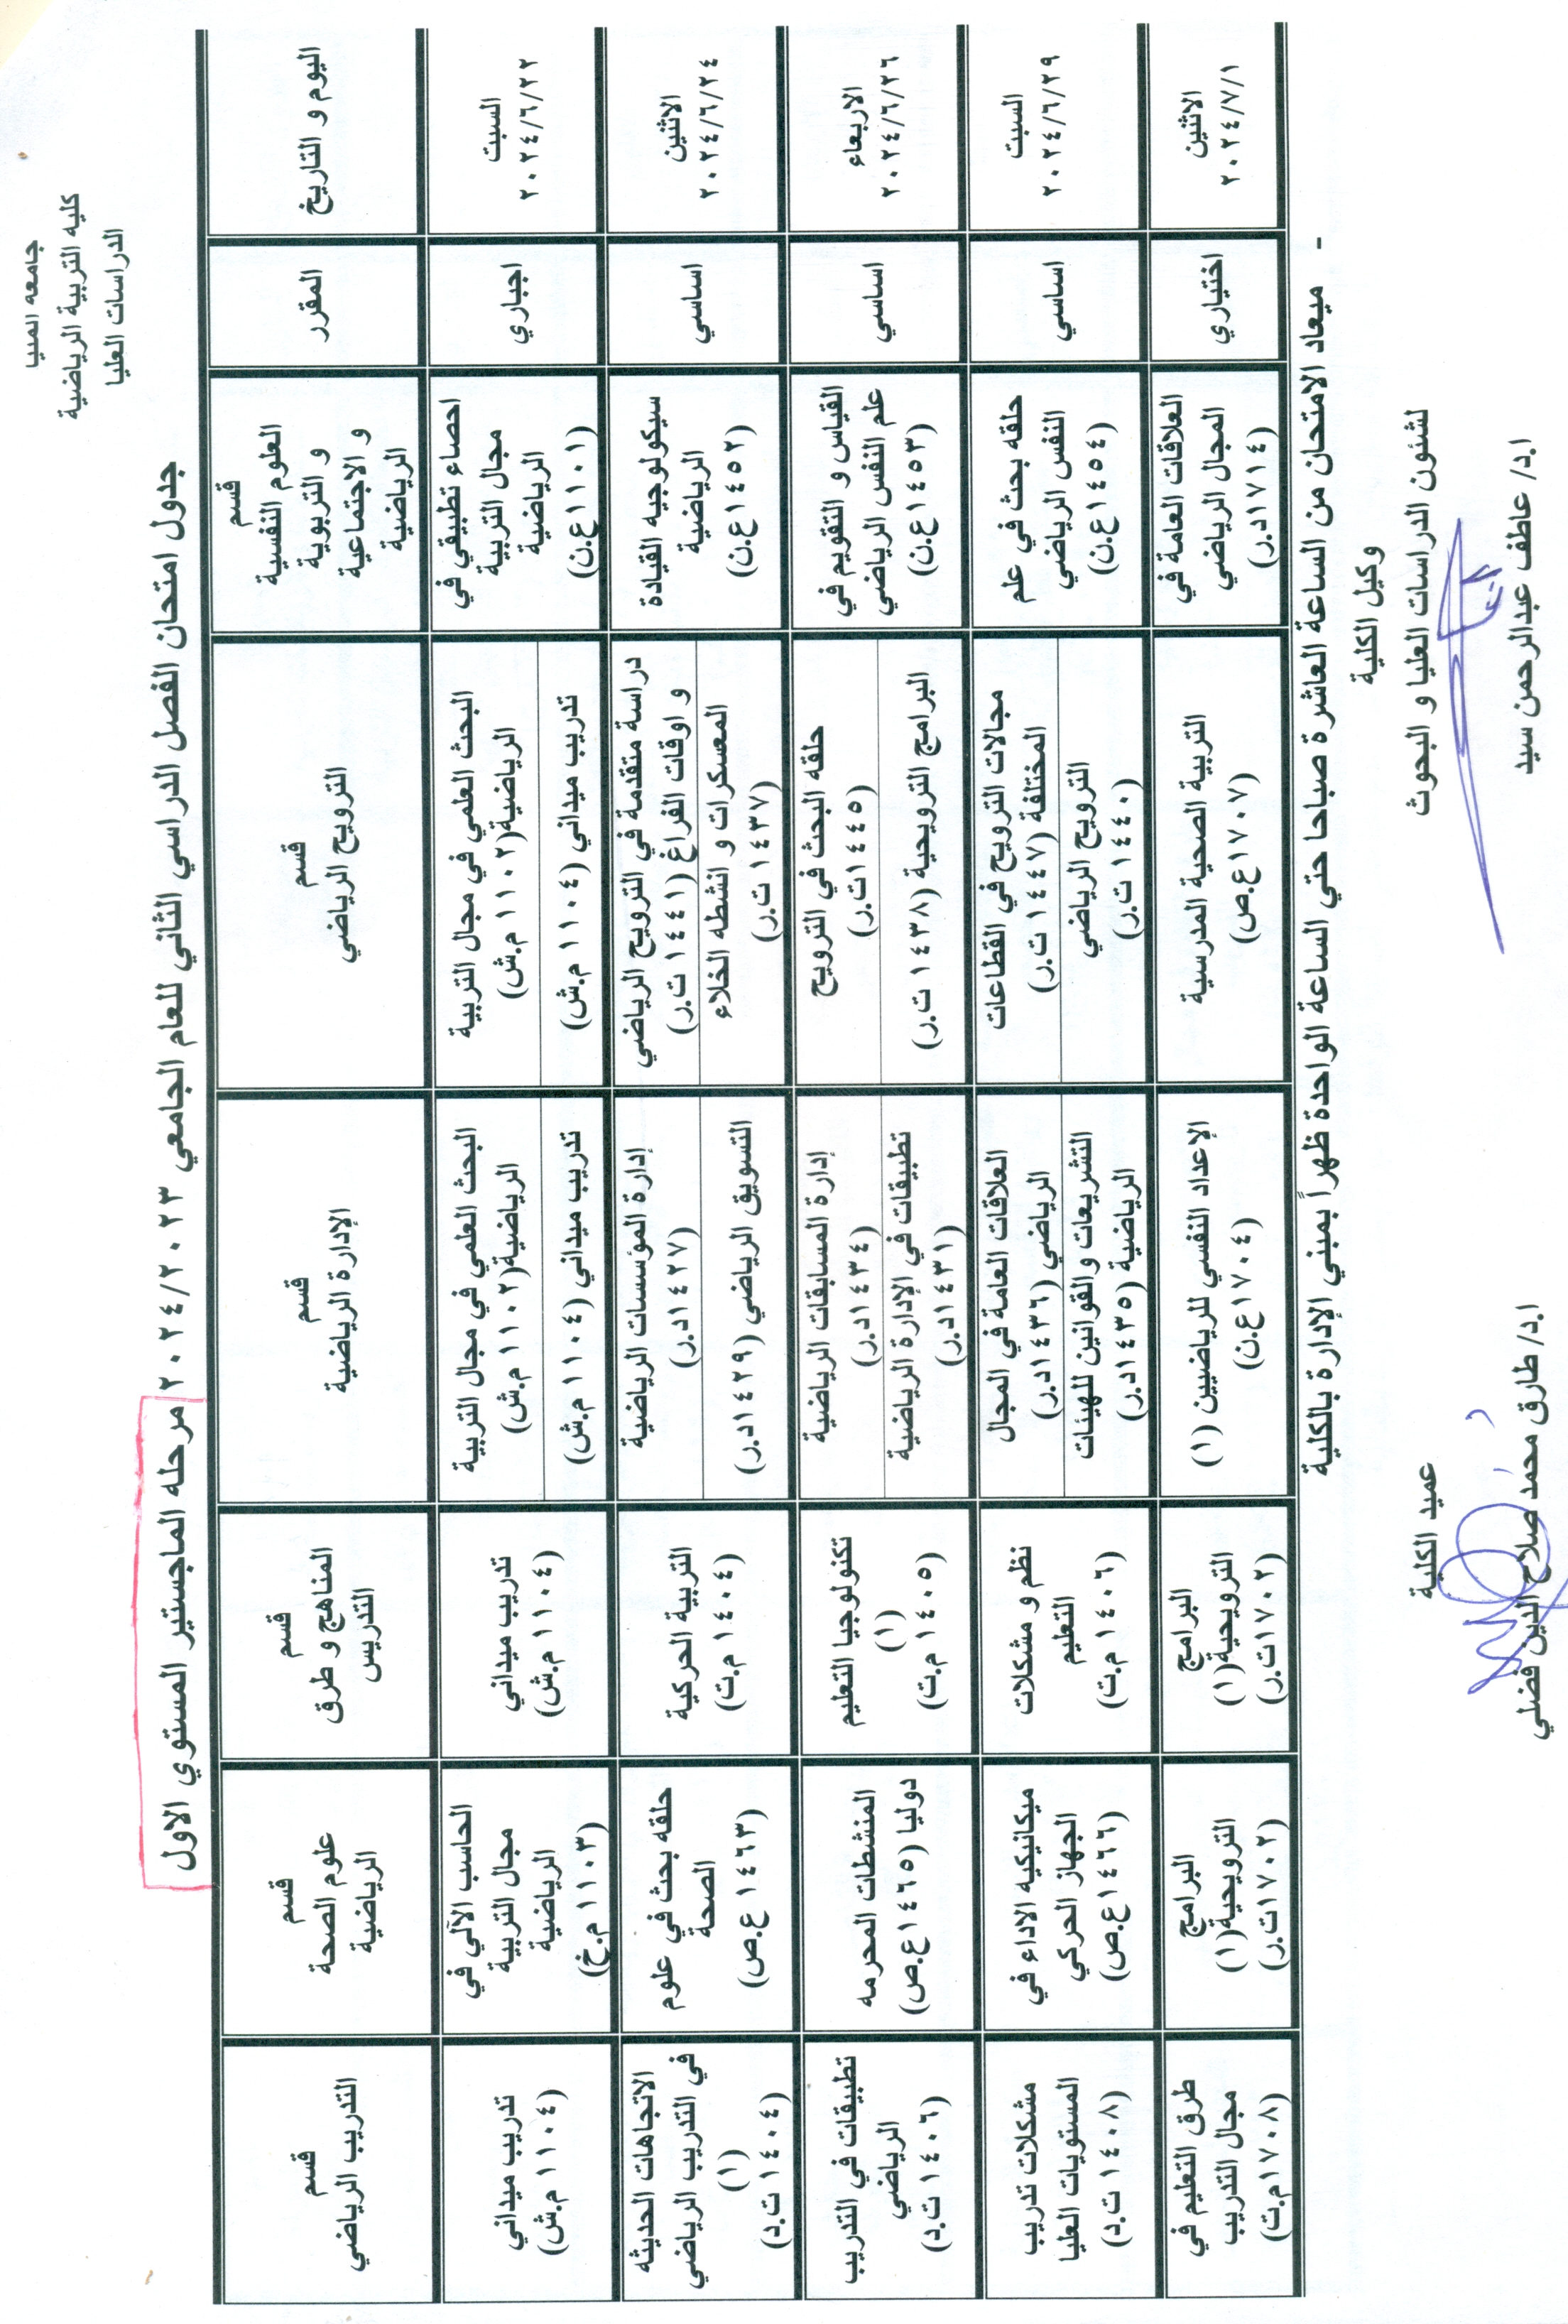 جامعه المنيا
كليه التربية الرياضية
الدراسات العليا
جدول امتحان الفصل الدراسي الثاني للعام الجامعي ٢٠٢٤/٢٠٢٣ مرحله الماجستير المستوي الاول
اليوم و التاريخ
المقرر
قسم
العلوم النفسية
و التربوية
و الاجتماعية
الرياضية
قسم
الترويح الرياضي
قسم
الإدارة الرياضية
قسم
المناهج و طرق
التدريس
قسم
علوم الصحة
الرياضية
قسم
التدريب الرياضي
السبت
٢٠٢٤/٦/٢٢
اجباري
احصاء تطبيقي في
مجال التربية
الرياضية
(١١٠١ع.ن)
البحث العلمي في مجال التربية
الرياضية(١١٠٢ م.ش)
تدريب ميداني (١١٠٤ م.ش)
البحث العلمي في مجال التربية
الرياضية(١١٠٢ م.ش)
تدريب ميداني (١١٠٤ م.ش)
تدريب ميداني
(١١٠٤ م.ش)
الحاسب الآلي في
مجال التربية
الرياضية
(١١٠٣ م.خ)
تدريب ميداني
(١١٠٤ م.ش)
الاثنين
٢٠٢٤/٦/٢٤
اساسي
سيكولوجيه القيادة
الرياضية
(١٤٥٢ع.ن)
دراسة متقدمة في الترويح الرياضي
و اوقات الفراغ (١٤٤١ ت.ر)
المعسكرات و انشطه الخلاء
(١٤٣٧ ت.ر)
إدارة المؤسسات الرياضية
(١٤٢٧د.ر)
التسويق الرياضي (١٤٢٩د.ر)
التربية الحركية
(١٤٠٤ م.ت)
حلقه بحث في علوم
الصحة
(١٤٦٣ ع.ص)
الاتجاهات الحديثه
في التدريب الرياضي
(١)
(١٤٠٤ ت.د)
الاربعاء
٢٠٢٤/٦/٢٦
اساسي
القياس و التقويم في
علم النفس الرياضي
(١٤٥٣ع.ن)
حلقه البحث في الترويح
(١٤٤٥ت.ر)
البرامج الترويحية (١٤٣٨ ت.ر)
إدارة المسابقات الرياضية
(١٤٣٤د.ر)
تطبيقات في الإدارة الرياضية
(١٤٣١د.ر)
تكنولوجيا التعليم
(١)
(١٤٠٥ م.ت)
المنشطات المحرمه
دوليا (١٤٦٥ع.ص)
تطبيقات في التدريب
الرياضي
(١٤٠٦ ت.د)
السبت
٢٠٢٤/٦/٢٩
اساسي
حلقه بحث في علم
النفس الرياضي
(١٤٥٤ع.ن)
مجالات الترويح في القطاعات
المختلفة (١٤٤٧ ت.ر)
الترويح الرياضي
(١٤٤٠ ت.ر)
العلاقات العامة في المجال
الرياضي (١٤٣٦د.ر)
التشريعات والقوانين للهيئات
الرياضية (١٤٣٥د.ر)
نظم و مشكلات
التعليم
(١٤٠٦ م.ت)
ميكانيكيه الاداء في
الجهاز الحركي
(١٤٦٦ع.ص)
مشكلات تدريب
المستويات العليا
(١٤٠٨ ت.د)
الاثنين
٢٠٢٤/٧/١
اختياري
العلاقات العامة في
المجال الرياضي
(١٧١٤د.ر)
التربية الصحية المدرسية
(١٧٠٧ع.ص)
الإعداد النفسي للرياضيين (١)
(١٧٠٤ع.ن)
البرامج
الترويحية(١)
(١٧٠٢ت.ر)
البرامج
الترويحية(١)
(١٧٠٢ت.ر)
طرق التعليم في
مجال التدريب
(١٧٠٨م.ت)
- ميعاد الامتحان من الساعة العاشرة صباحا حتي الساعة الواحدة ظهراً بمبني الإدارة بالكلية
وكيل الكلية
لشئون الدراسات العليا و البحوث
ا.د/ عاطف عبدالرحمن سيد
عميد الكلية
ا.د/ طارق محمد صلاح الدين فضلي